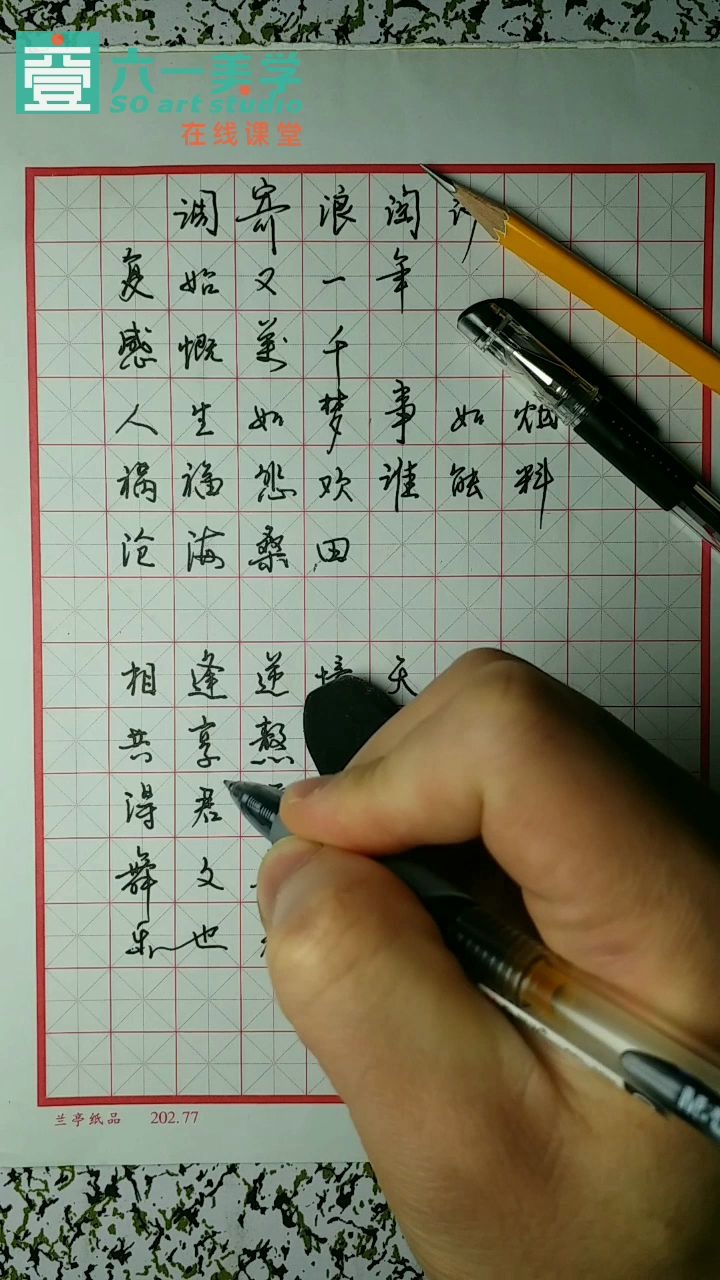 壹 六一美学
SO art studio
在线课堂
调寄浪淘沙
复始又一年
感慨万千
人生如梦事如烟
祸福怨欢谁能料
沧海桑田
相逢逆境天
共享熬
得君
舞文
乐也
兰亭纸品 202.77
M&G